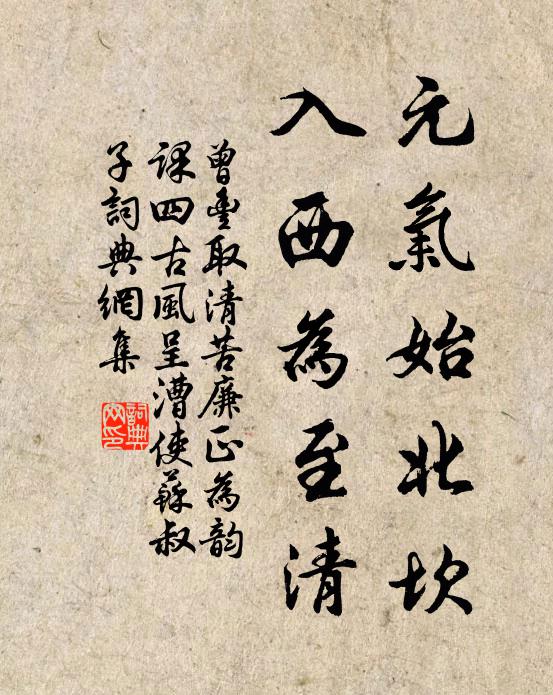 元氣始北坎
入西為至清
曾豊取清苦廉正為韵
課四古風呈漕使蘇叔
子詞典網集
詞典网印